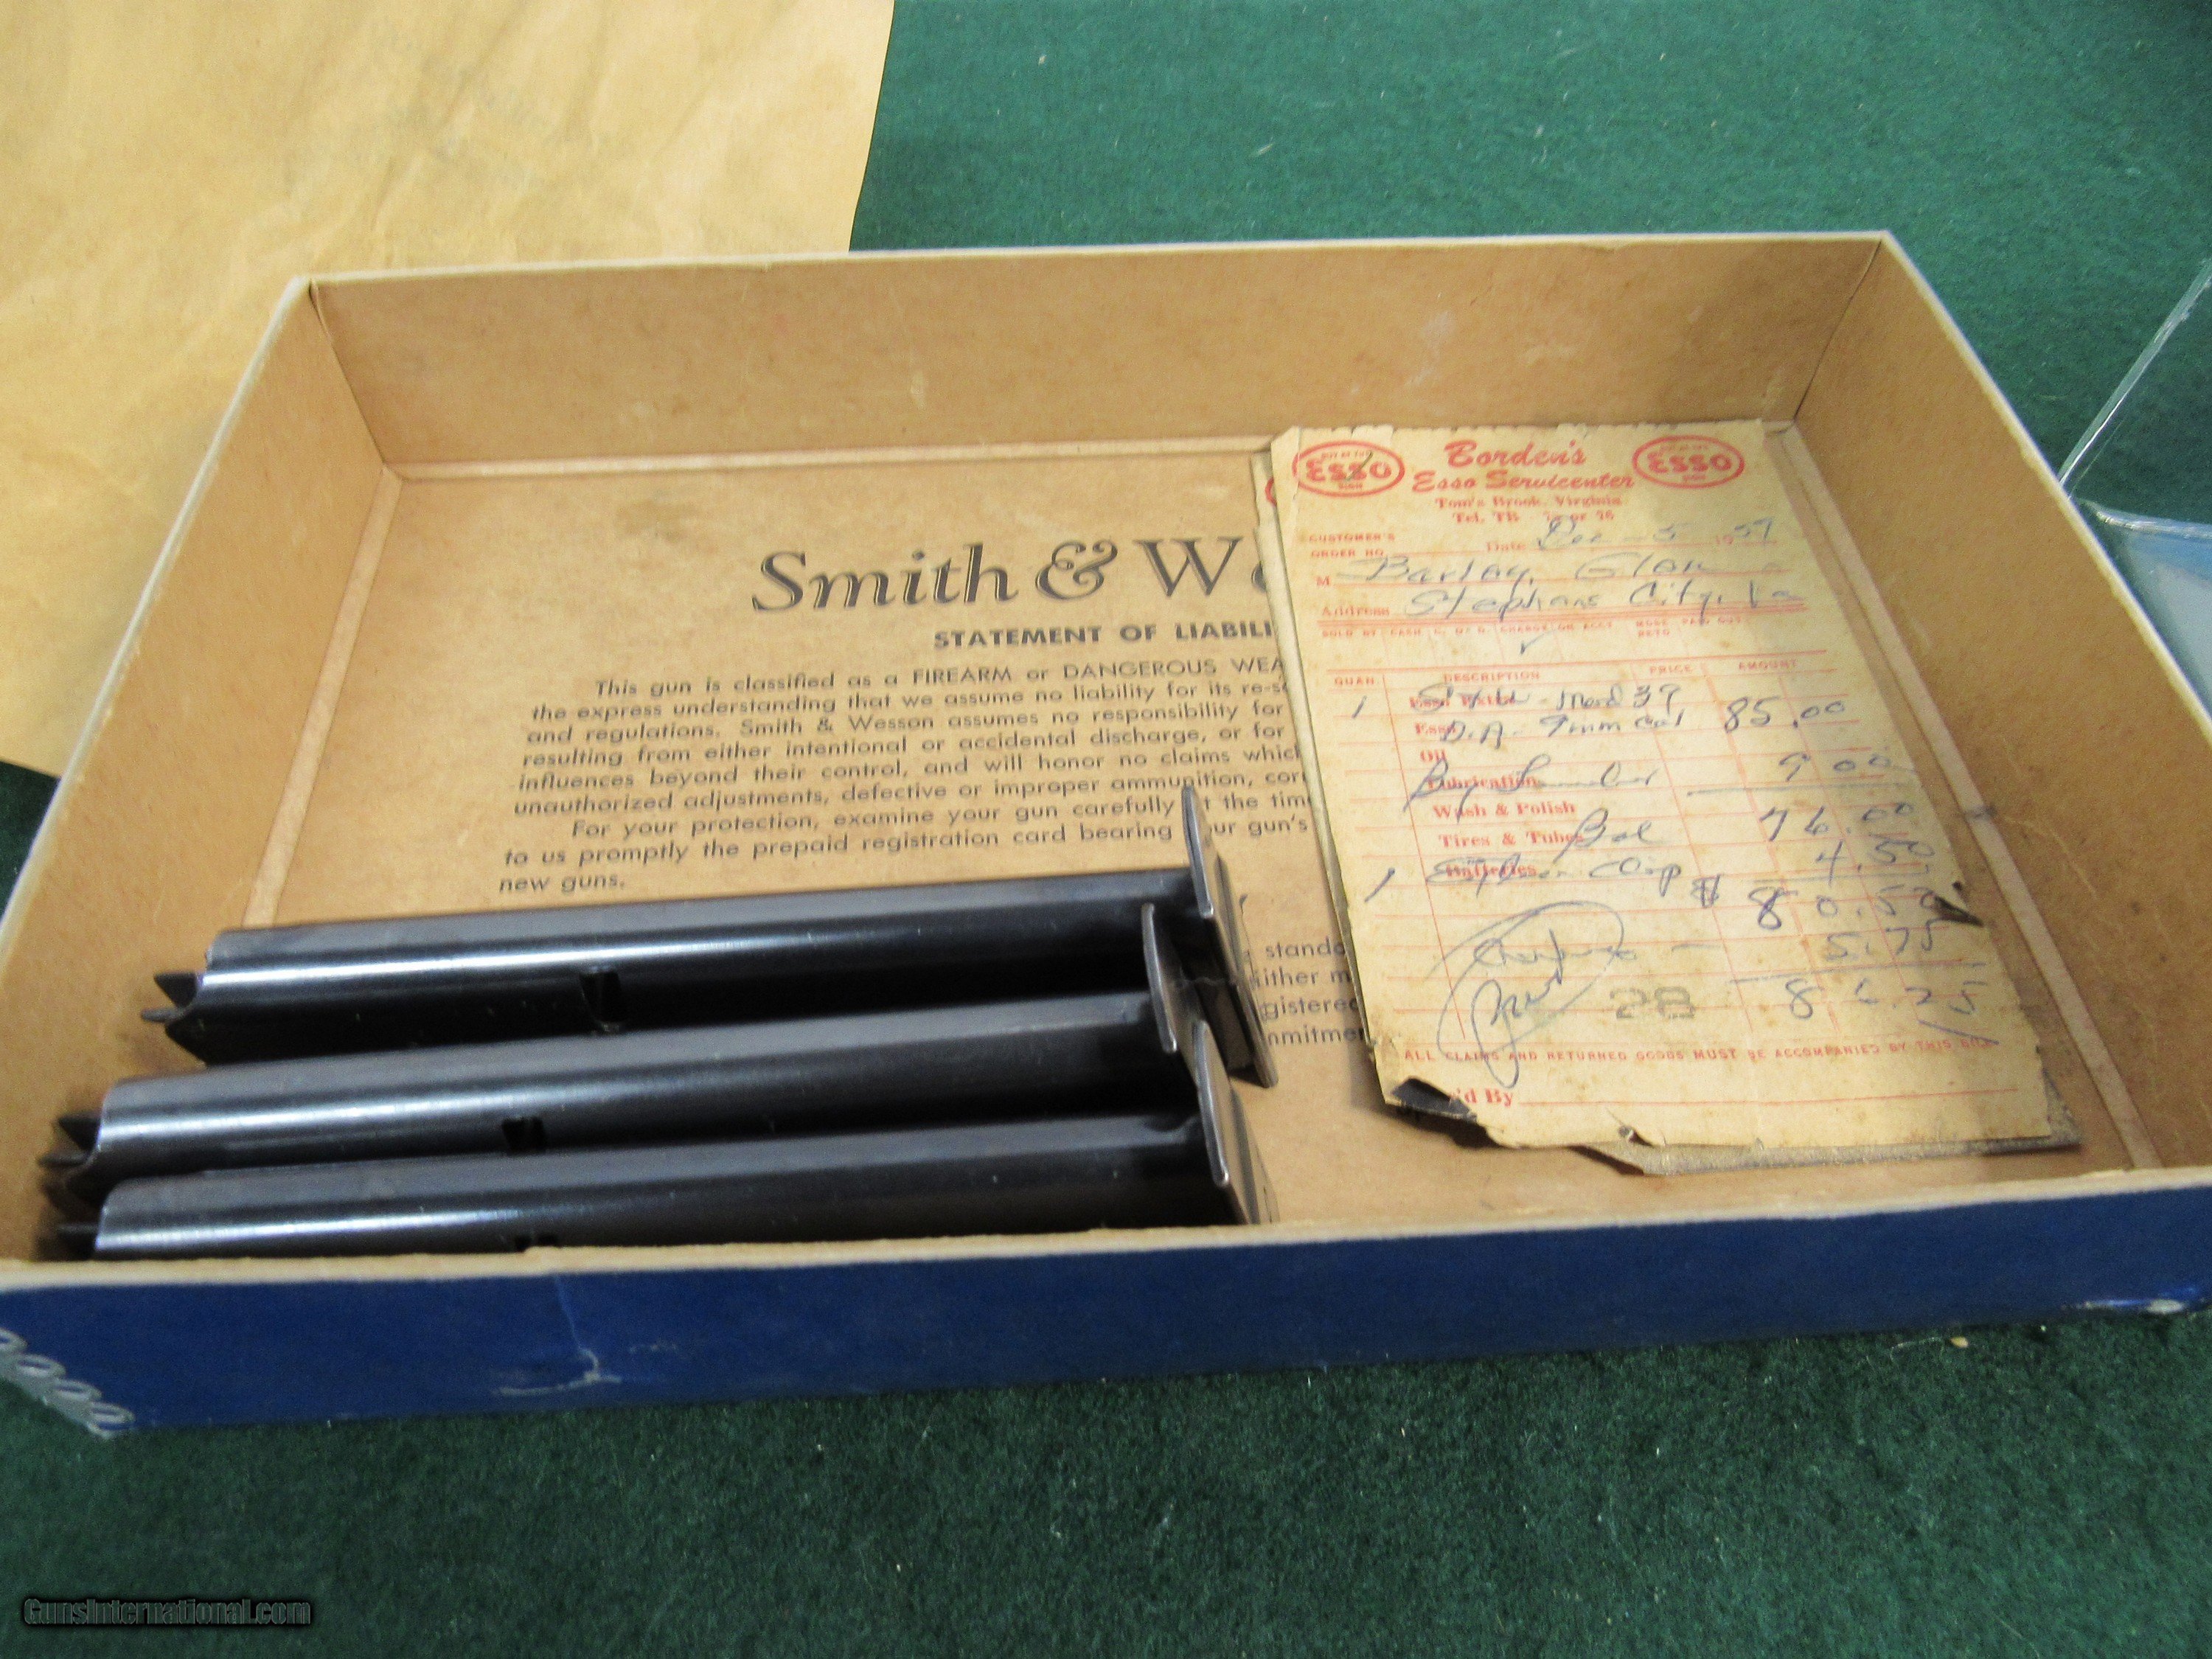 Smith & We
STATEMENT OF LIABILI
This gun is classified as a FIREARM or DANGEROUS WEA
the express understanding that we assume no liability for its re-s
and regulations. Smith & Wesson assumes no responsibility for
resulting from either intentional or accidental discharge, or for
influences beyond their control, and will honor no claims which
unauthorized adjustments, defective or improper ammunition, cor
For your protection, examine your gun carefully at the time
to us promptly the prepaid registration card bearing your gun's
new guns.
standa
either m
gistered
mmitmen
ESSO Borden's ESSO
SIGN Esso Servicenter SIGN
Tom's Brook, Virginia
Tel. TB or 76
CUSTOMER'S
ORDER NO. Date Dec - 5 1957
M Barley, Glen
Address Stephens City, Va
SOLD BY CASH C. O. D. CHARGE ON ACCT. MDSE. RETD. PAID OUT
QUAN. DESCRIPTION PRICE AMOUNT
1 S&W - Mod 39
Esso D.A. 9mm cal 85.00
Oil
Lubrication By 9 00
Wash & Polish
Tires & Tubes Bal 76.00
1 Batteries Clip 4.50
$ 80.50
5.75
28 86.25
ALL CLAIMS AND RETURNED GOODS MUST BE ACCOMPANIED BY THIS BILL
'd By
GunsInternational.com